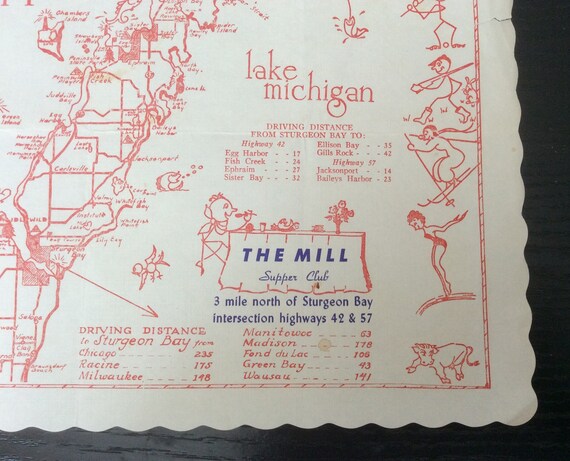 Chambers Island
lake michigan
DRIVING DISTANCE
FROM STURGEON BAY TO:
Highway 42
Egg Harbor - - 17
Fish Creek - - 24
Ephraim - - - 27
Sister Bay - - - 32
Ellison Bay - - 35
Gills Rock - - - 42
Highway 57
Jacksonport - - 14
Baileys Harbor - 23
Juddville
Carlsville
Jacksonport
Institute
Whitefish Point
Lily Bay
Sturgeon Bay
THE MILL
Supper Club
3 mile north of Sturgeon Bay
intersection highways 42 & 57
DRIVING DISTANCE
to Sturgeon Bay from
Chicago - - - - 235
Racine - - - - 175
Milwaukee - - - 148
Manitowoc - - - - 63
Madison - - - - - 178
Fond du Lac - - - 106
Green Bay - - - - 43
Wausau - - - - 141